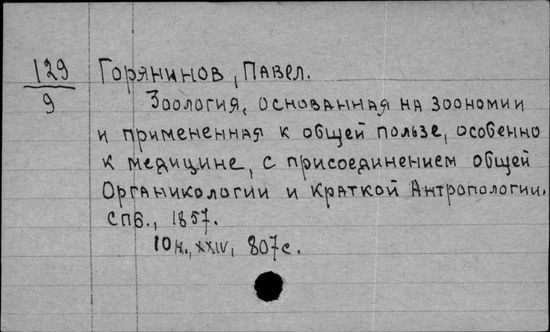 129
9
Горянинов, Павел.
Зоология, основанная на зоономии
и примененная к общей пользе, особенно
к медицине, с присоединением общей
Органикологии и краткой Антропологии.
СПБ., 1857.
10н., XXIV, 807с.